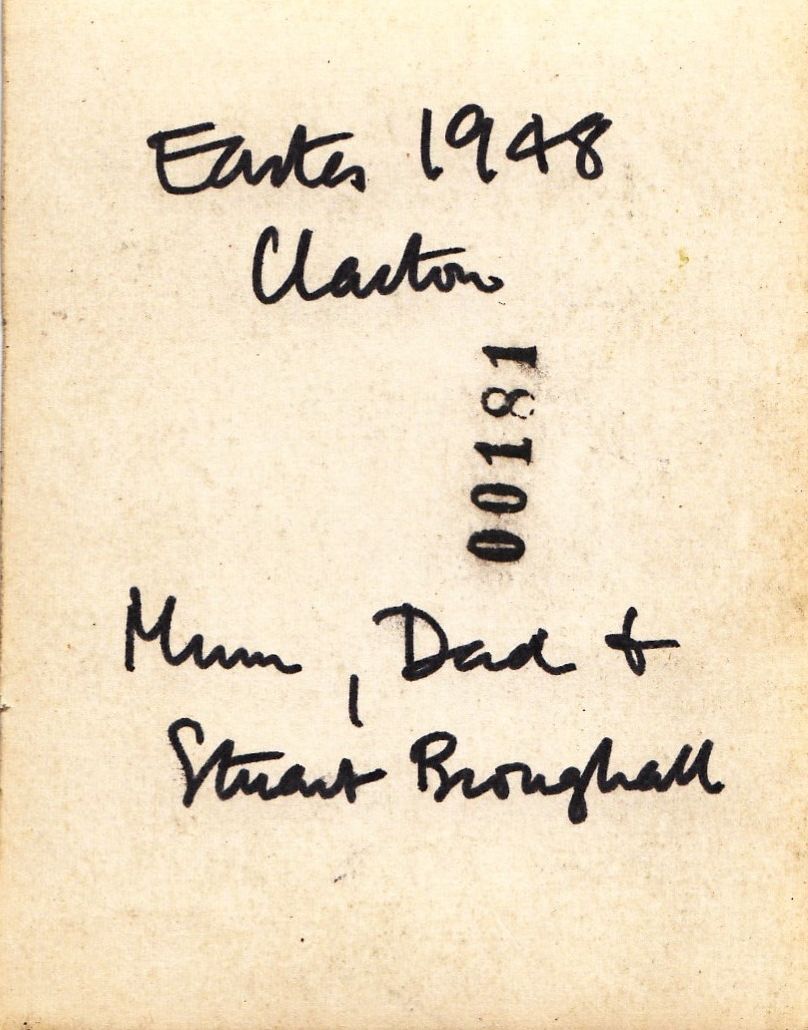 Easter 1948
Clacton
00181
Mum, Dad &
Stuart Broughall